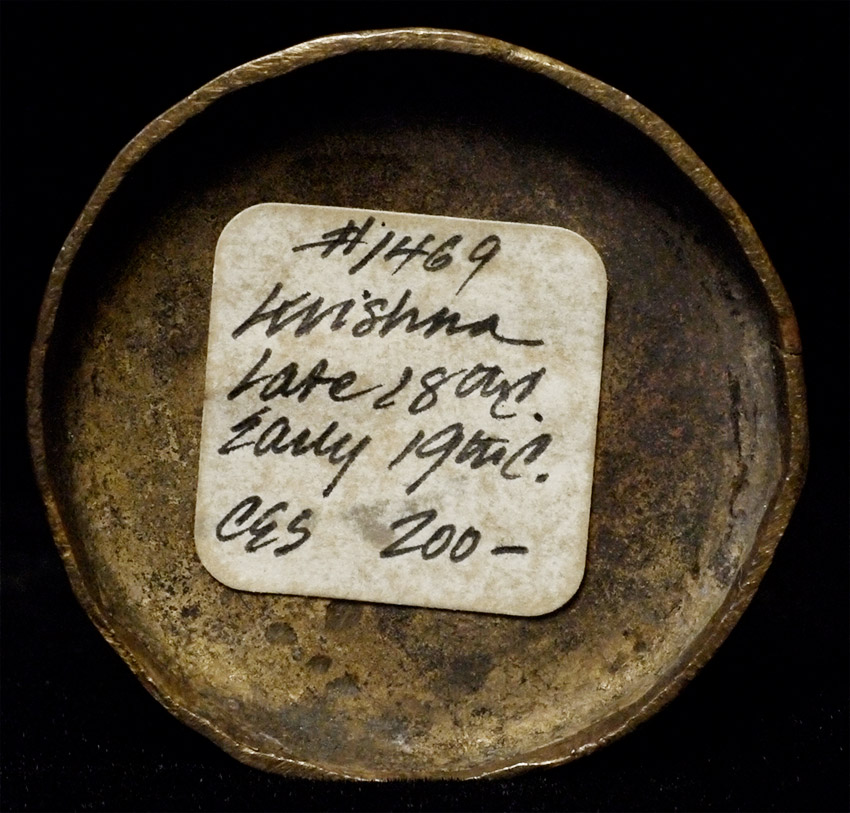 #1469
Krishna
Late 18th C.
Early 19th C.
CES 200-